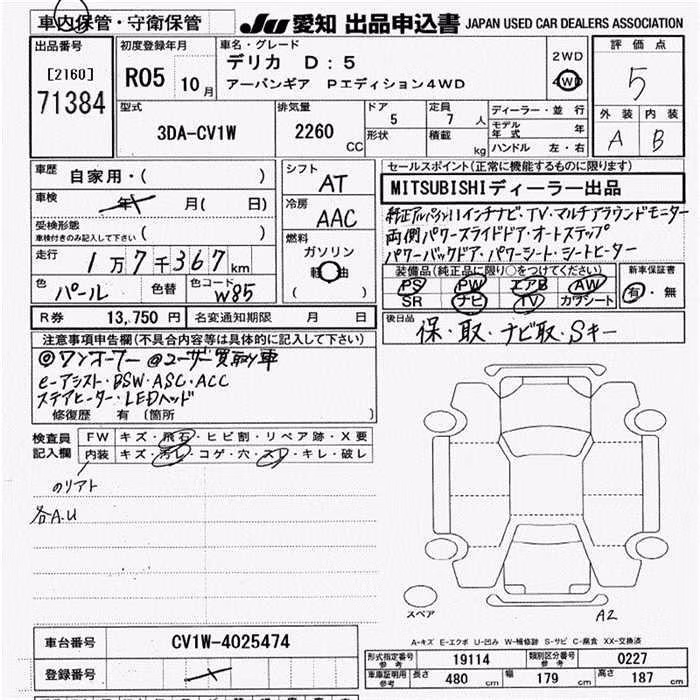 車内保管・守衛保管
JU 愛知 出品申込書 JAPAN USED CAR DEALERS ASSOCIATION
出品番号
[2160]
71384
初度登録年月
R05 10月
車名・グレード
デリカ D:5
アーバンギア Pエディション4WD
2WD
4WD
評価点
5
外装 内装
A B
型式
3DA-CV1W
排気量
2260 CC
ドア
5
形状
定員
7 人
積載
kg
ディーラー・並行
モデル年式 年
ハンドル 左・右
車歴
自家用・( )
車検
年 月( 日)
受検形態
車検付きのみ記入して下さい ( )
走行
1万7千367km
色
パール
色替
色コード
W85
シフト
AT
冷房
AAC
燃料
ガソリン
軽油
( )
セールスポイント(正常に機能するものに限ります)
MITSUBISHIディーラー出品
純正アルパイン11インチナビ・TV・マルチアラウンドモニター
両側パワースライドドア・オートステップ
パワーバックドア・パワーシート・シートヒーター
装備品(純正品に限り○をつけてください)
PS PW エアB AW
SR ナビ TV カワシート
新車保証書
有・無
R券 13,750 円
名変通知期限 月 日
後日品
保・取・ナビ取・Sキー
注意事項申告欄(不具合内容等は具体的に記入して下さい)
◎ワンオーナー @ユーザー買取り車
e-アシスト・BSW・ASC・ACC
ステアヒーター・LEDヘッド
修復歴 有 〔箇所 〕
検査員
記入欄
FW キズ・飛石・ヒビ割・リペア跡・X要
内装 キズ・汚レ・コゲ・穴・スレ・キレ・破レ
各A.U
スペア
A2
A-キズ E-エクボ U-凹み W-補修跡 S-サビ C-腐食 XX-交換済
車台番号
CV1W-4025474
登録番号
形式指定番号
参考
19114
類別区分番号
参考
0227
車庫証明用
参考
長さ 480 cm 幅 179 cm 高さ 187 cm